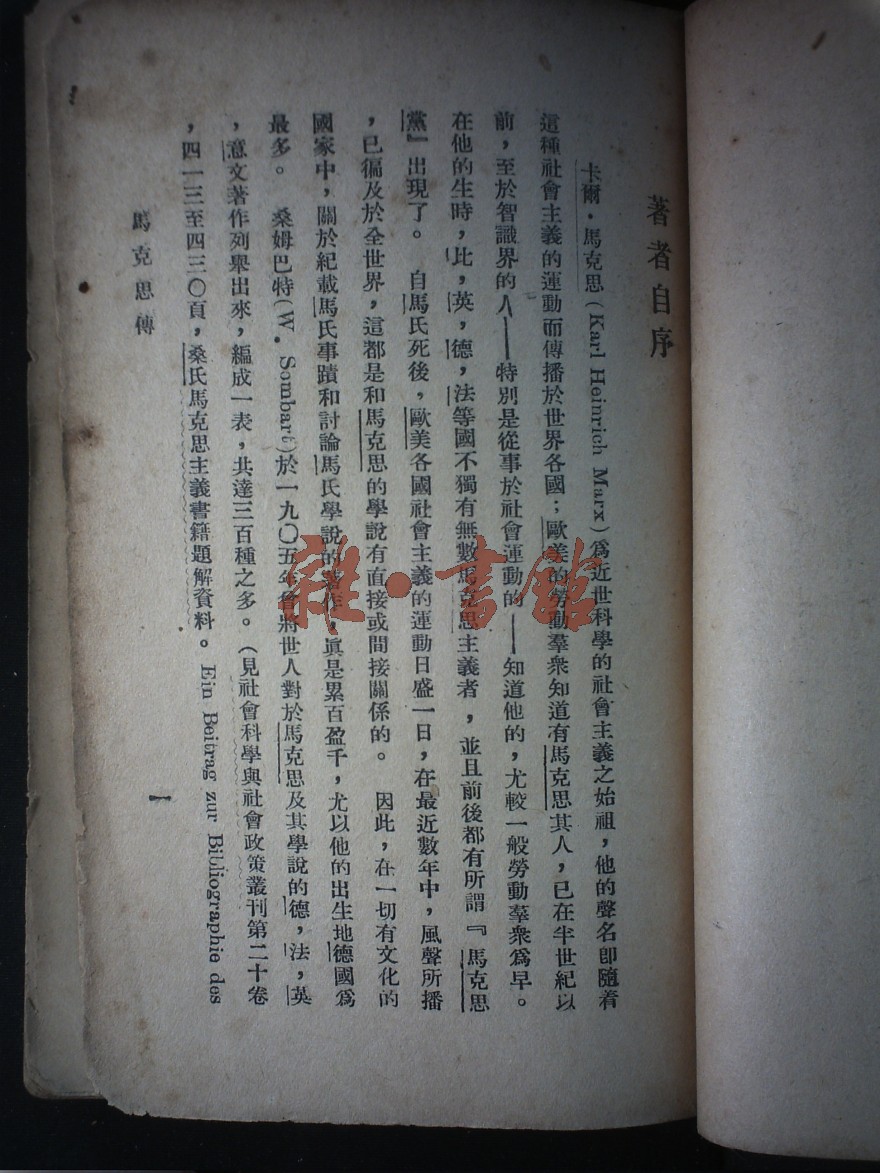 著者自序
卡爾·馬克思(Karl Heinrich Marx)爲近世科學的社會主義之始祖，他的聲名即隨着
這種社會主義的運動而傳播於世界各國；歐美的勞動羣衆知道有馬克思其人，已在半世紀以
前，至於智識界的人——特別是從事於社會運動的——知道他的，尤較一般勞動羣衆爲早。
在他的生時，比，英，德，法等國不獨有無數馬克思主義者，並且前後都有所謂『馬克思
黨』出現了。 自馬氏死後，歐美各國社會主義的運動日盛一日，在最近數年中，風聲所播
，已徧及於全世界，這都是和馬克思的學說有直接或間接關係的。 因此，在一切有文化的
國家中，關於紀載馬氏事蹟和討論馬氏學說的著作，眞是累百盈千，尤以他的出生地德國爲
最多。 桑姆巴特(W. Sombart)於一九〇五年曾將世人對於馬克思及其學說的德，法，英
，意文著作列舉出來，編成一表，共達三百種之多。（見社會科學與社會政策叢刊第二十卷
，四一三至四三〇頁，桑氏馬克思主義書籍題解資料。Ein Beitrag zur Bibliographie des
馬克思傳
一
雜·書館